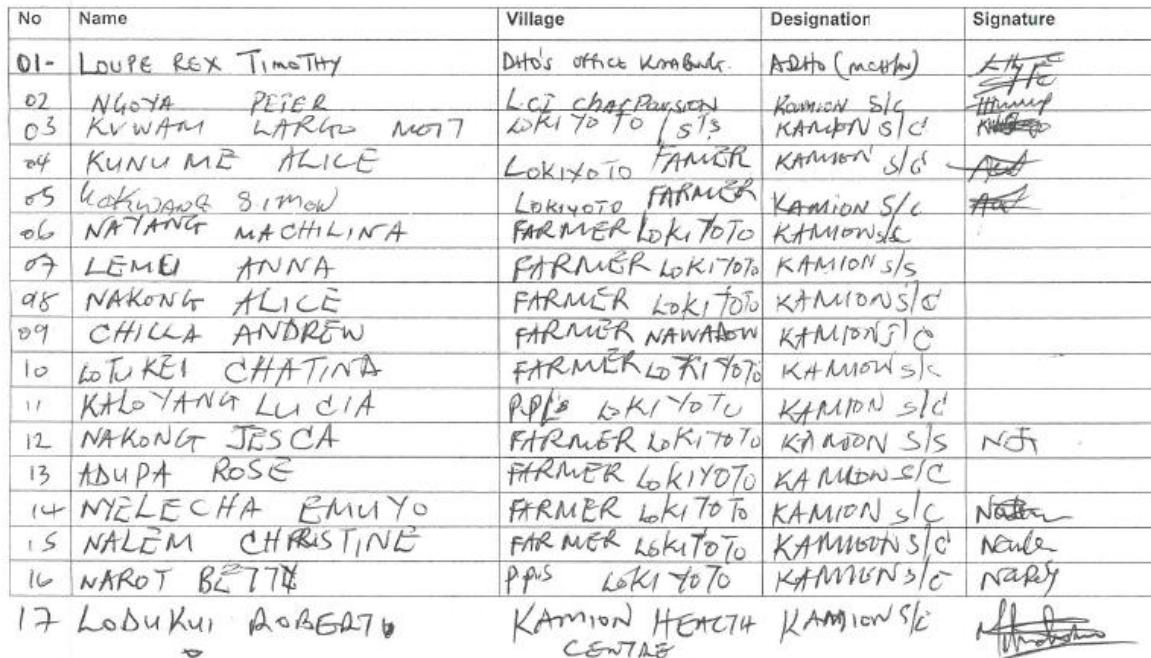 No Name Village Designation Signature
01- LOUPE REX TIMOTHY DHO'S OFFICE KAABONG. ADHO (MCH/N)
02 NGOYA PETER LCI Chairperson Kamion S/C
03 KUWAM LARGO MOTT LOKIYOTO KAMION S/C
04 KUNUME ALICE LOKIYOTO FAMER KAMION S/C
05 LOKWANG SIMON LOKIYOTO FARMER KAMION S/C
06 NAYANG MACHILINA FARMER LOKITOTO KAMION S/C
07 LEMU ANNA FARMER LOKITOTO KAMION S/S
08 NAKONG ALICE FARMER LOKITOTO KAMION S/C
09 CHILLA ANDREW FARMER NAWADOW KAMION S/C
10 LOTUKEI CHATINA FARMER LOKITOTO KAMION S/C
11 KALOYANG LUCIA LOKIYOTO KAMION S/C
12 NAKONG JESCA FARMER LOKITOTO KAMION S/S
13 ADUPA ROSE FARMER LOKIYOTO KAMION S/C
14 NYELECHA EMUYO FARMER LOKITOTO KAMION S/C
15 NALEM CHRISTINE FARMER LOKITOTO KAMION S/C
16 NAROT BETTY PPIS LOKIYOTO KAMION S/C
17 LODUKUI ROBERT KAMION HEALTH KAMION S/C
CENTRE